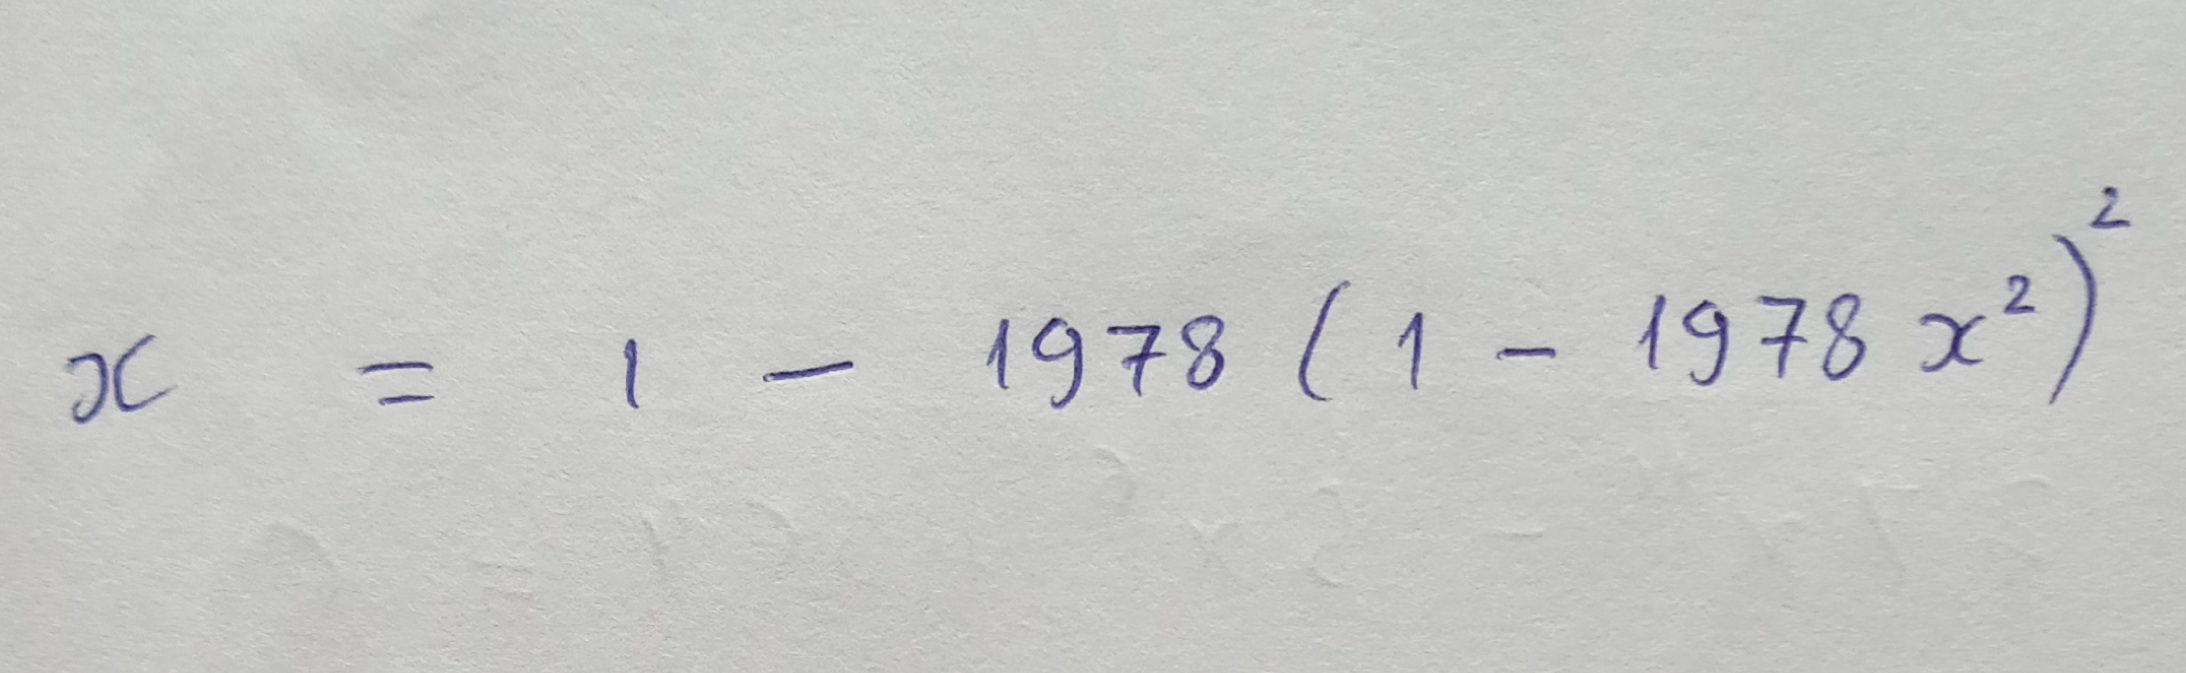 x = 1 - 1978 (1 - 1978 x²)²